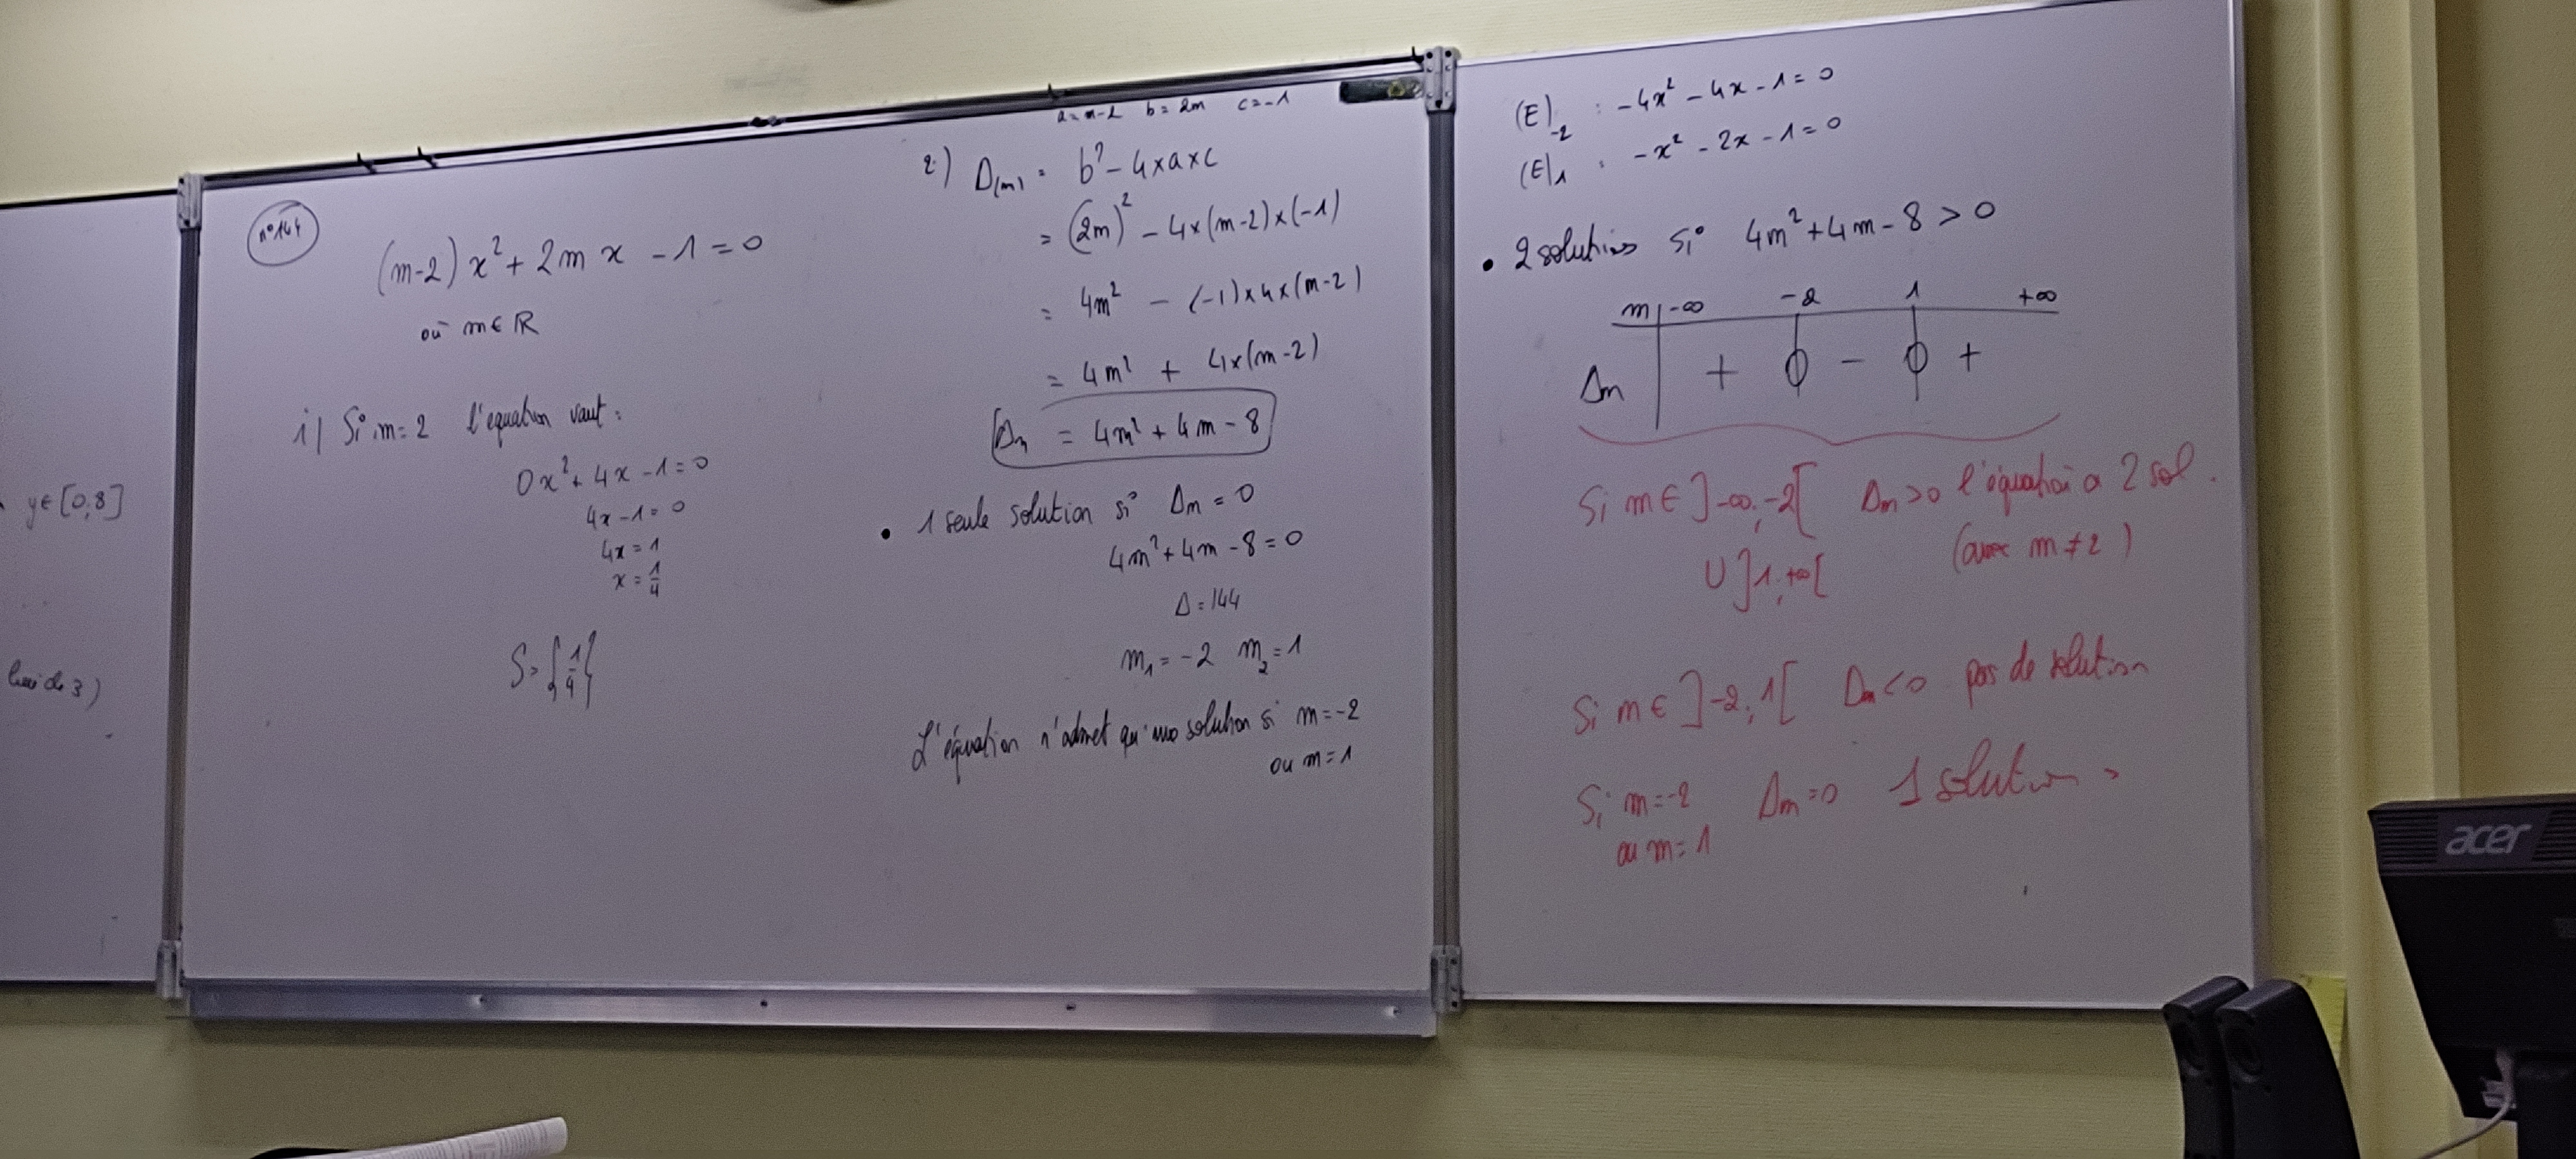 y∈[0,8]
n°144
(m-2)x²+2mx-1=0
où m∈ℝ
1) Si m=2 l'équation vaut:
0x²+4x-1=0
4x-1=0
4x=1
x=1/4
S={1/4}
a=m-2 b=2m c=-1
2) Δ(m) = b²-4×a×c
= (2m)²-4×(m-2)×(-1)
= 4m² - (-1)×4×(m-2)
= 4m² + 4×(m-2)
Δm = 4m²+4m-8
• 1 seule solution si Δm=0
4m²+4m-8=0
Δ=144
m₁=-2 m₂=1
L'équation n'admet qu'une solution si m=-2
ou m=1
(E)₋₂ : -4x²-4x-1=0
(E)₁ : -x²-2x-1=0
• 2 solutions si 4m²+4m-8>0
m -∞ -2 1 +∞
Δm + 0 - 0 +
Si m∈]-∞;-2[ Δm>0 l'équation a 2 sol.
∪]1;+∞[ (avec m≠2)
Si m∈]-2;1[ Δm<0 pas de solution
Si m=-2 Δm=0 1 solution
ou m=1
acer